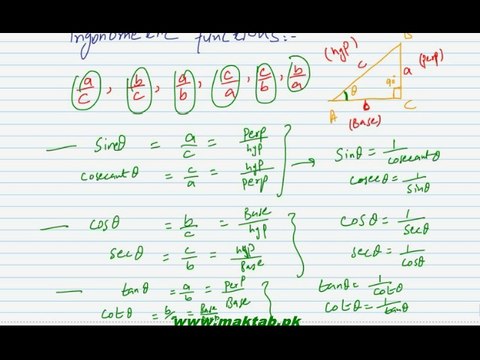 Trigonometric functions:-
a/c , b/c , a/b , c/a , c/b , b/a
B
(hyp) c a (perp)
θ 90°
A b C
(Base)
Sinθ = a/c = Perp/hyp
cosecantθ = c/a = hyp/perp
Sinθ = 1/cosecantθ
cosecθ = 1/sinθ
cosθ = b/c = Base/hyp
secθ = c/b = hyp/Base
cosθ = 1/secθ
secθ = 1/cosθ
tanθ = a/b = Perp/Base
cotθ = b/a = Base/
tanθ = 1/cotθ
cotθ = 1/tanθ
www.maktab.pk